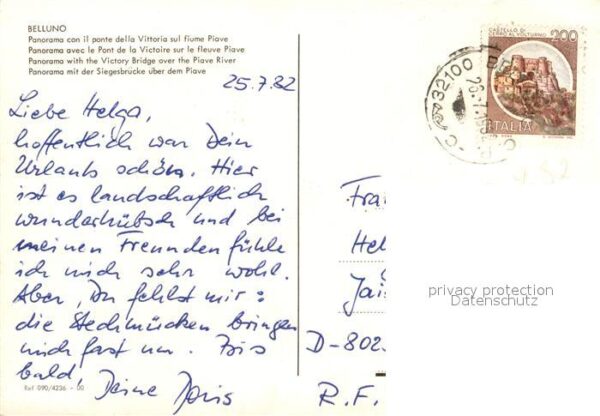 BELLUNO
Panorama con il ponte della Vittoria sul fiume Piave
Panorama avec le Pont de la Victoire sur le fleuve Piave
Panorama with the Victory Bridge over the Piave River
Panorama mit der Siegesbrücke über dem Piave
25.7.82
Liebe Helga,
hoffentlich war Dein
Urlaub schön. Hier
ist es landschaftlich
wunderhübsch und bei
meinen Freunden fühle
ich mich sehr wohl.
Aber, Du fehlst mir:
die Stechmücken bringen
mich fast um. Bis
bald,
Deine Doris
Ref 090/4236 - 00
CASTELLO DI
CERRO AL VOLTURNO
200
ITALIA
32100
Frau
Hel
Jais
D-802
R.F.
privacy protection
Datenschutz